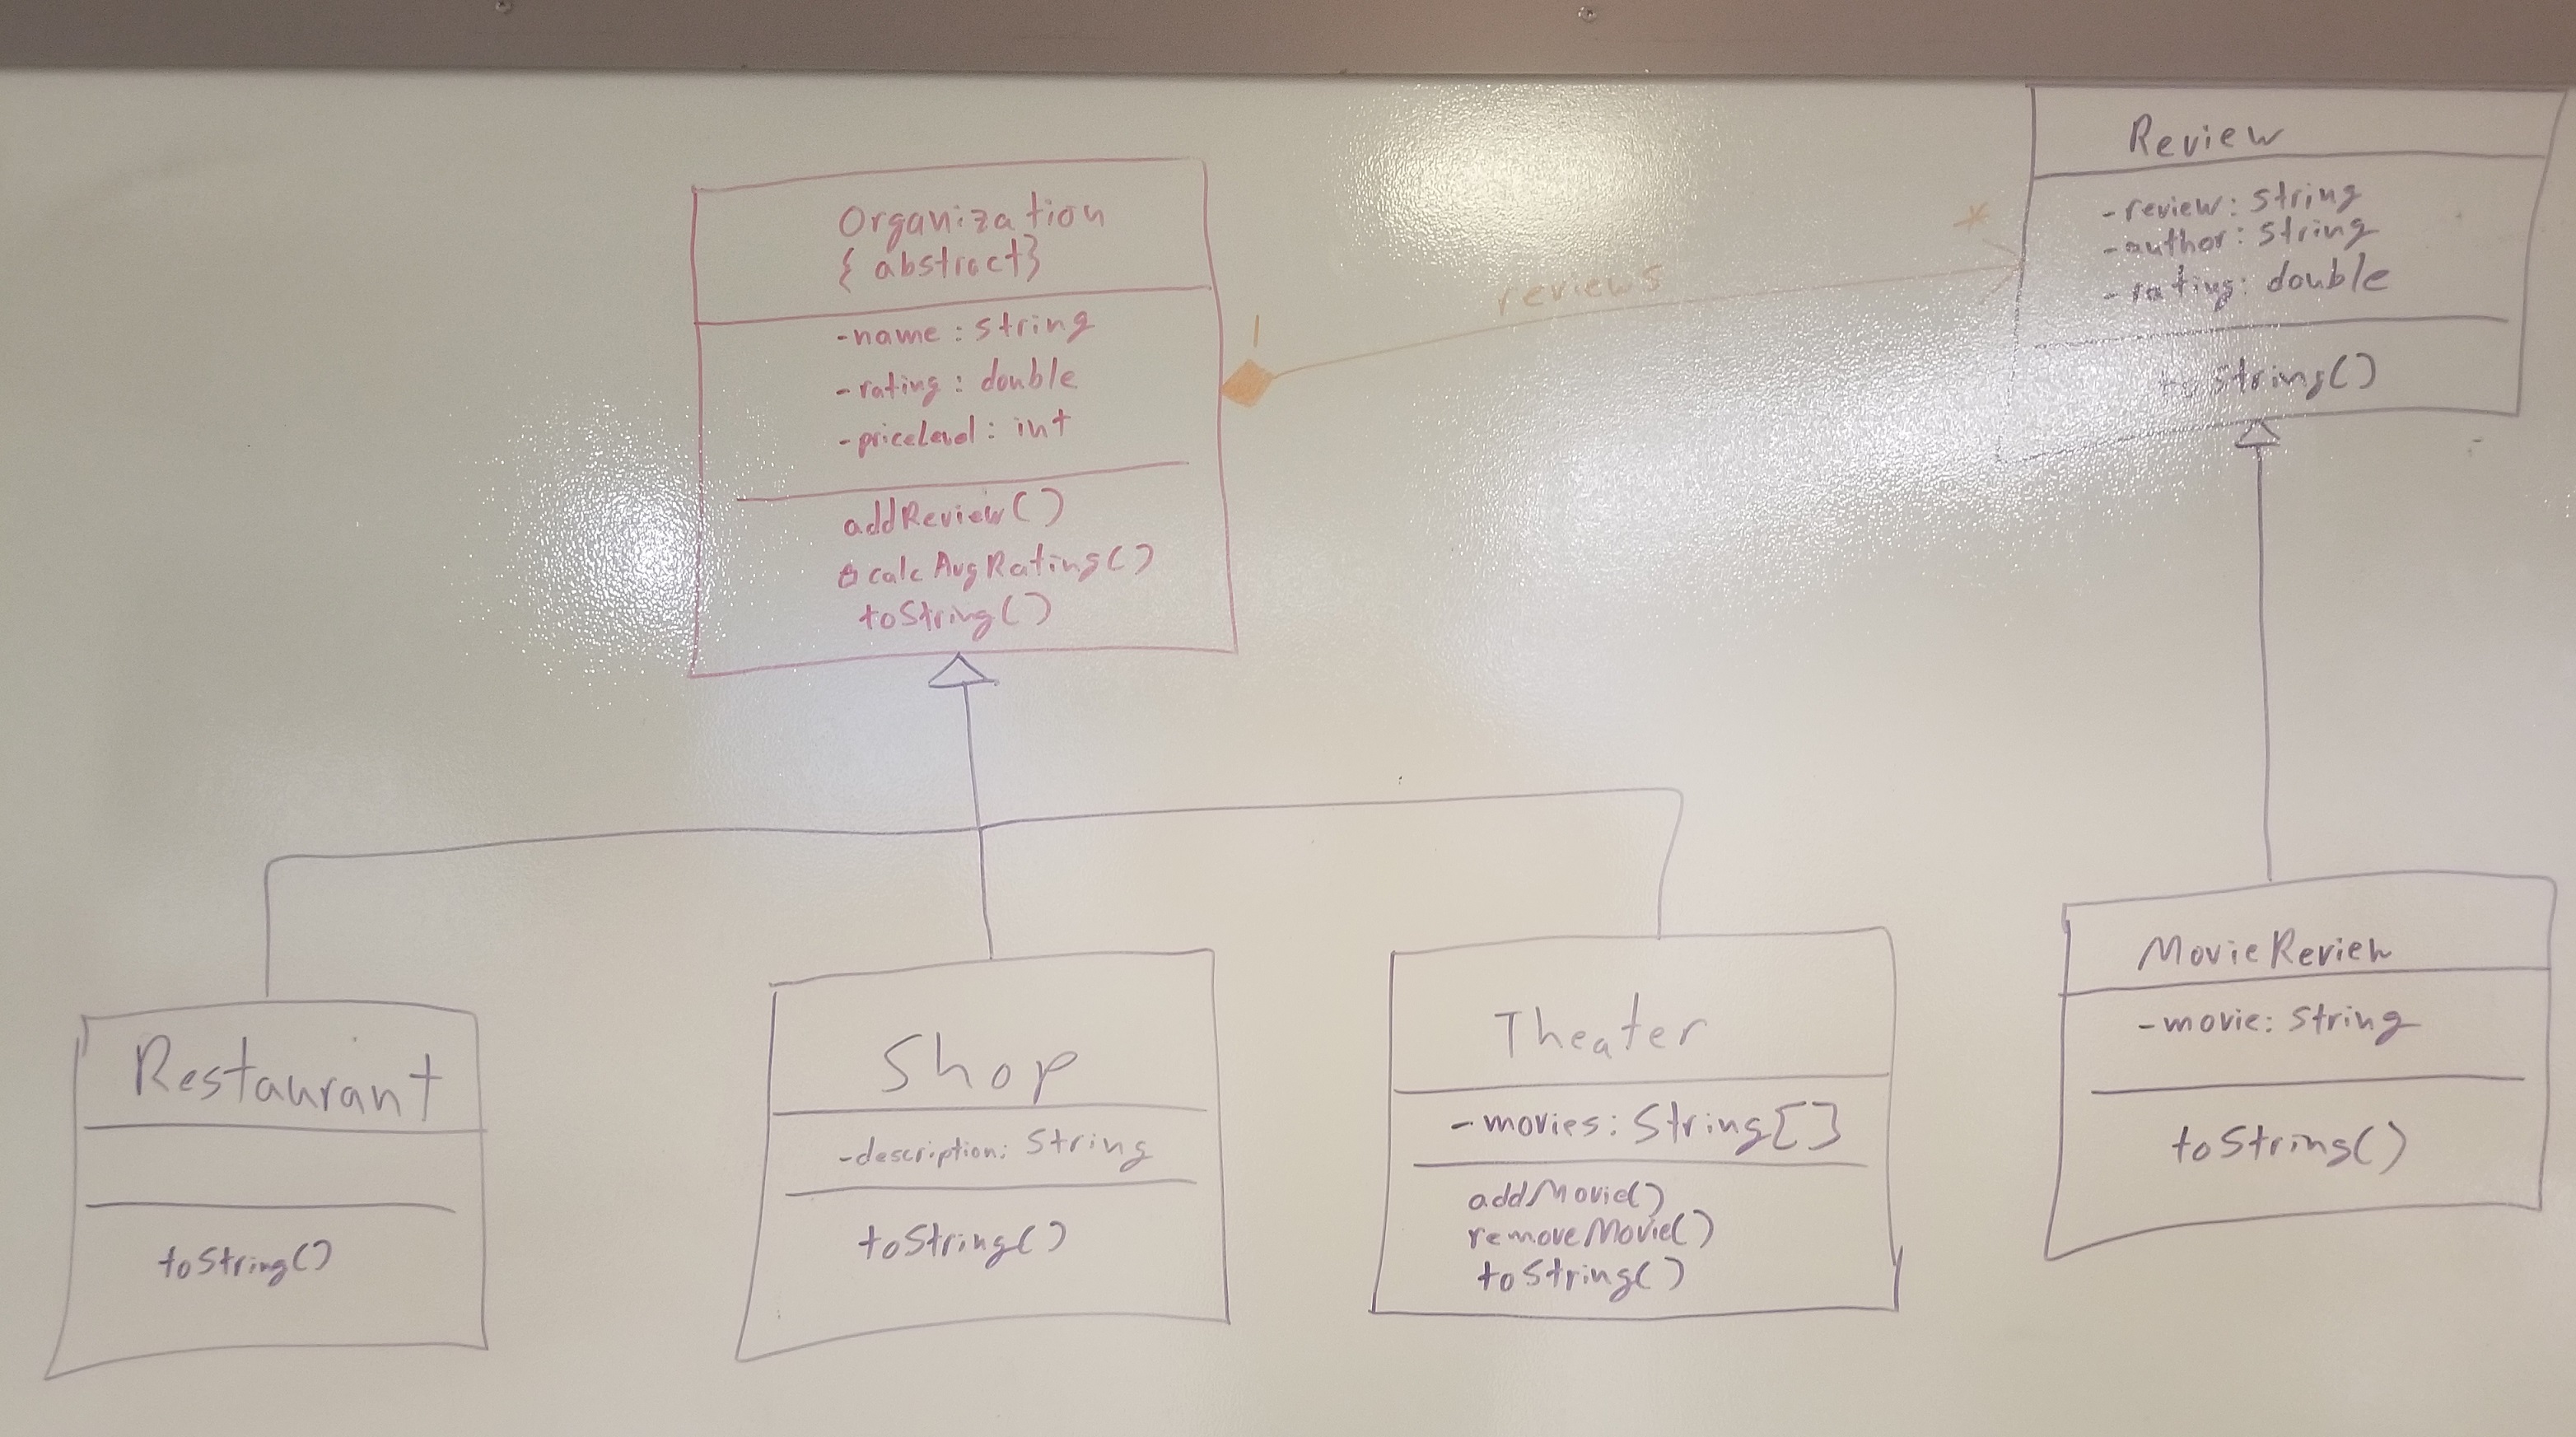 Organization
{ abstract}
-name : string
-rating : double
-priceLevel : int
addReview()
calcAvgRating()
toString()
1
reviews
*
Review
-review: string
-author: string
-rating: double
toString()
Restaurant
toString()
Shop
-description: String
toString()
Theater
-movies: String[]
addMovie()
removeMovie()
toString()
MovieReview
-movie: String
toString()